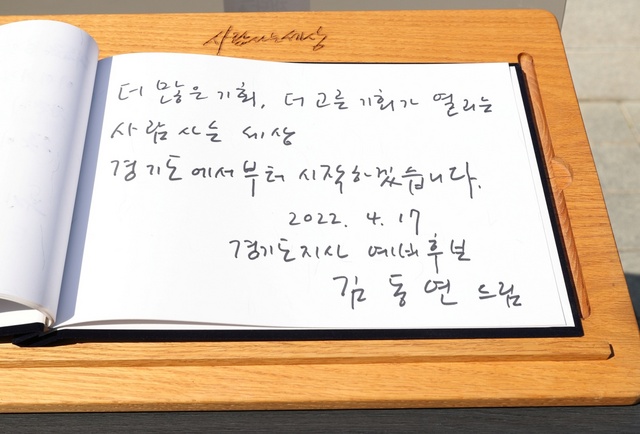 사람사는세상
더 많은 기회, 더 고른 기회가 열리는
사람 사는 세상
경기도에서부터 시작하겠습니다.
2022. 4. 17
경기도지사 예비후보
김동연 드림